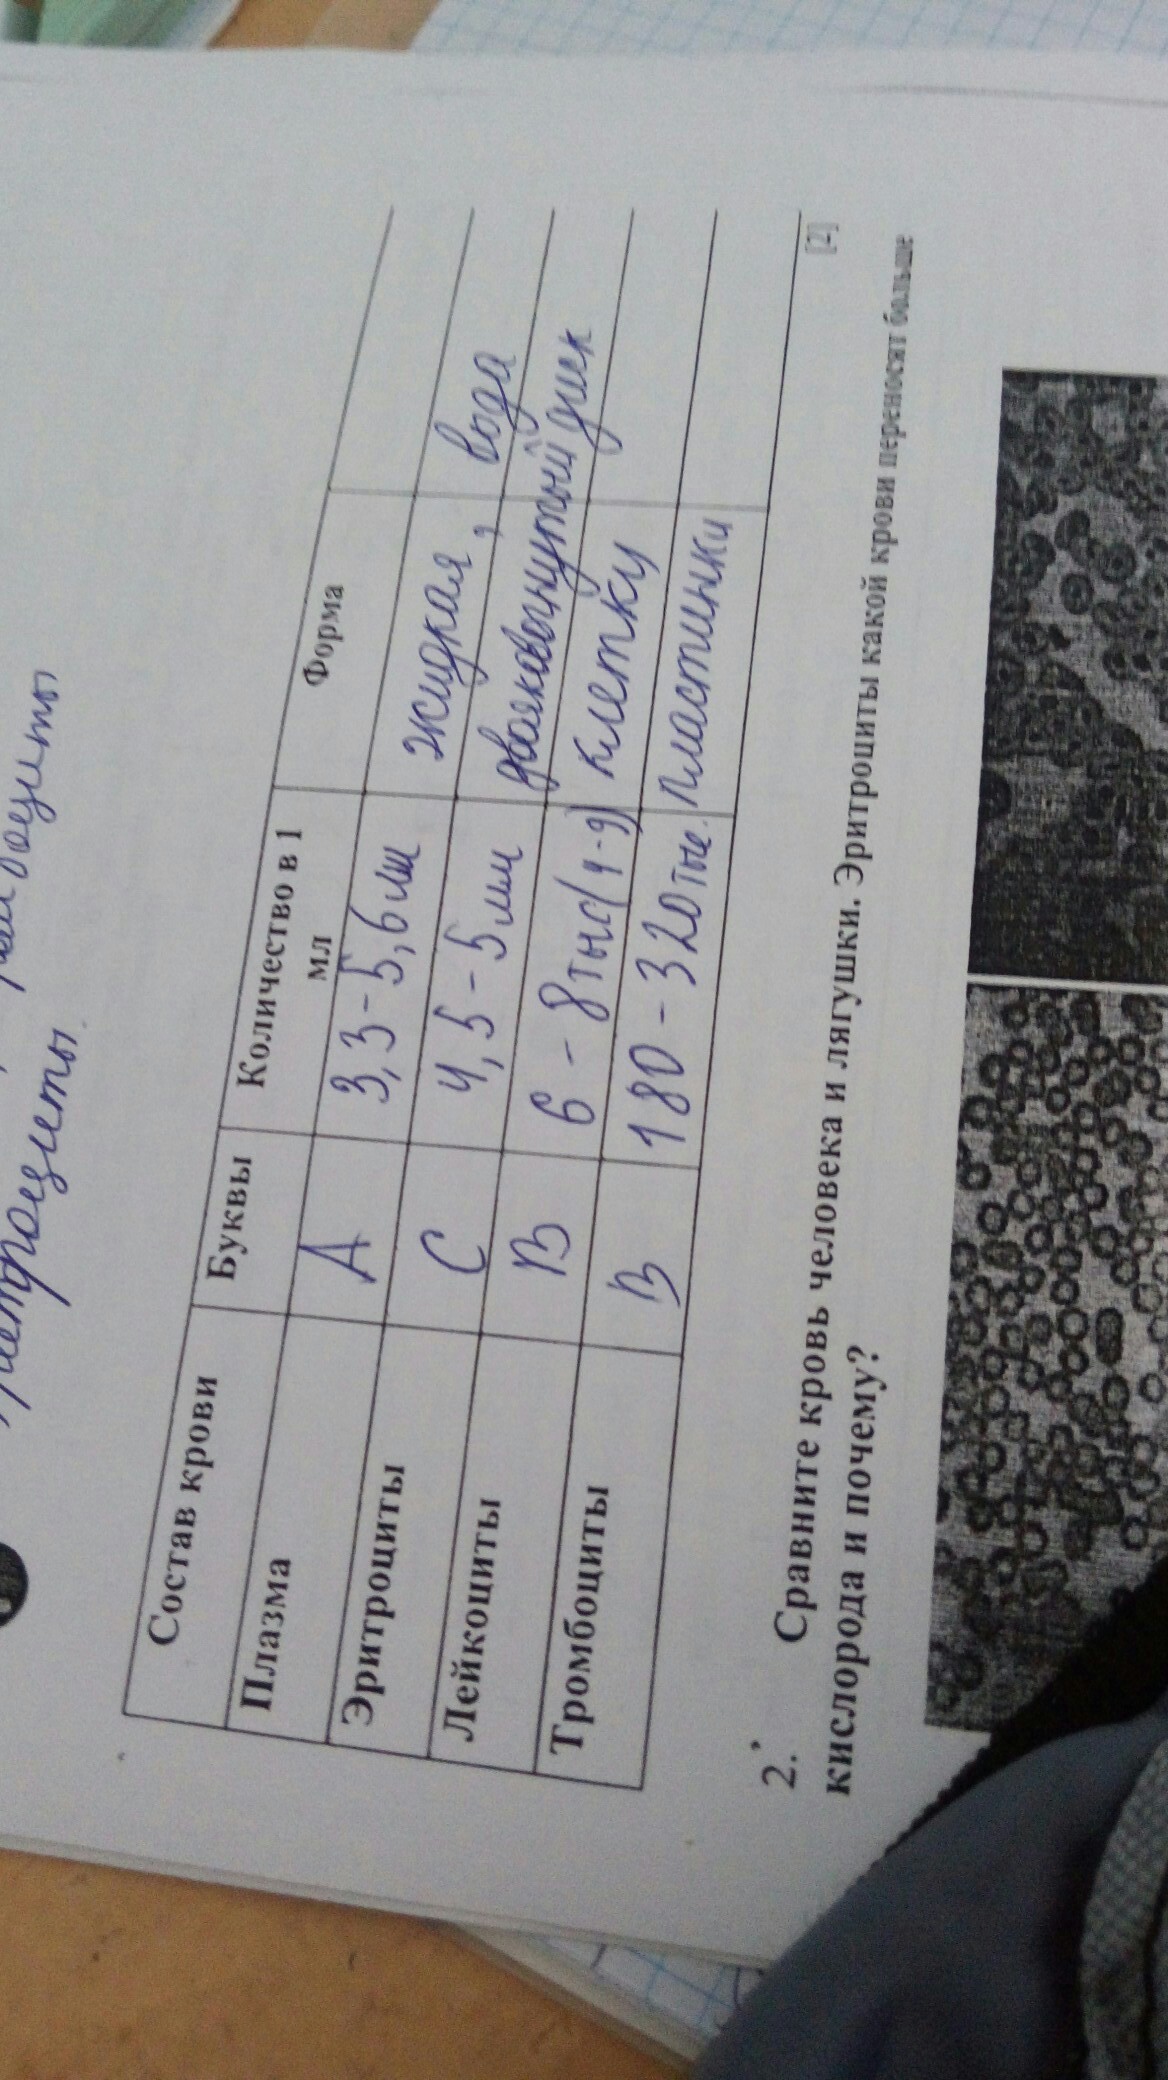 Состав крови Буквы Количество в 1 мл Форма
Плазма А 3,3-5,6 жидкая, вода
Эритроциты С 4,5-5 млн двояковогнутый диск
Лейкоциты В 6-8 тыс (4-9) клетки
Тромбоциты В 180-320 тыс. пластинки
[2]
2. Сравните кровь человека и лягушки. Эритроциты какой крови переносят больше
кислорода и почему?